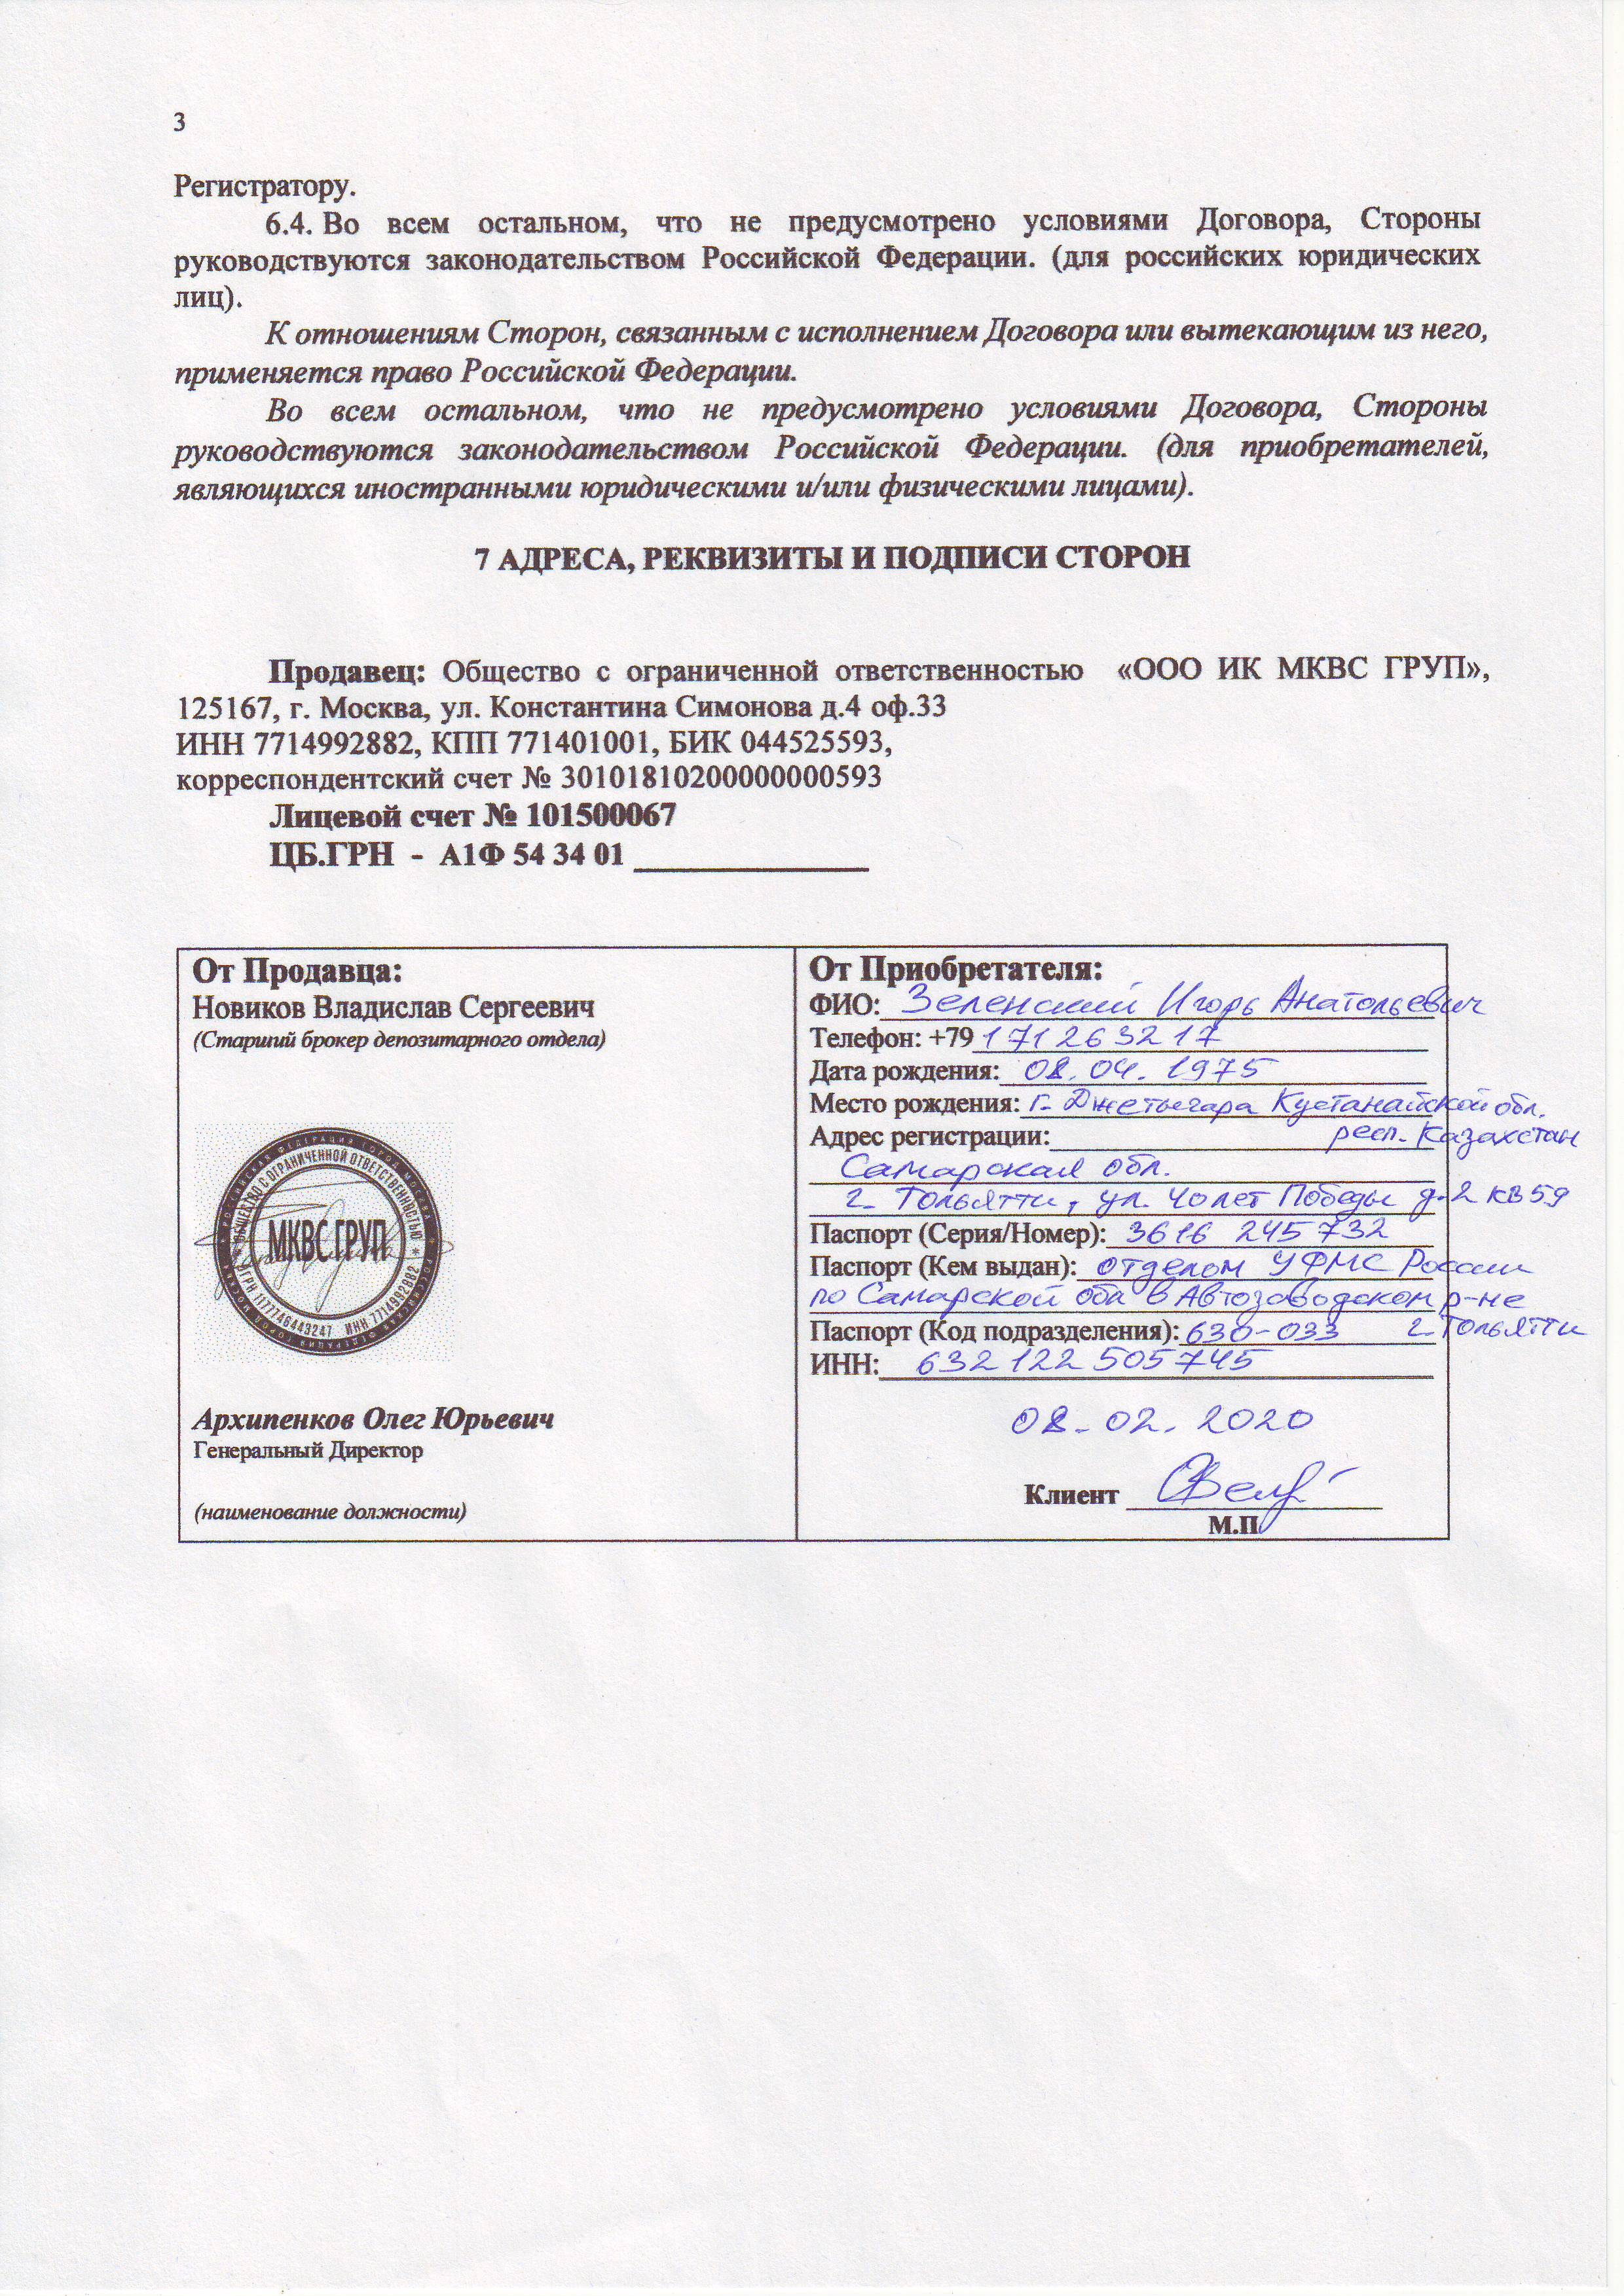 3
Регистратору.
6.4. Во всем остальном, что не предусмотрено условиями Договора, Стороны
руководствуются законодательством Российской Федерации. (для российских юридических
лиц).
К отношениям Сторон, связанным с исполнением Договора или вытекающим из него,
применяется право Российской Федерации.
Во всем остальном, что не предусмотрено условиями Договора, Стороны
руководствуются законодательством Российской Федерации. (для приобретателей,
являющихся иностранными юридическими и/или физическими лицами).
7 АДРЕСА, РЕКВИЗИТЫ И ПОДПИСИ СТОРОН
Продавец: Общество с ограниченной ответственностью «ООО ИК МКВС ГРУП»,
125167, г. Москва, ул. Константина Симонова д.4 оф.33
ИНН 7714992882, КПП 771401001, БИК 044525593,
корреспондентский счет № 30101810200000000593
Лицевой счет № 101500067
ЦБ.ГРН - А1Ф 54 34 01
От Продавца:
Новиков Владислав Сергеевич
(Старший брокер депозитарного отдела)
РОССИЙСКАЯ ФЕДЕРАЦИЯ ГОРОД МОСКВА
ОБЩЕСТВО С ОГРАНИЧЕННОЙ ОТВЕТСТВЕННОСТЬЮ
МКВС ГРУП
ОГРН 1177746443247 ИНН 7714992882
Архипенков Олег Юрьевич
Генеральный Директор
(наименование должности)
От Приобретателя:
ФИО: Зеленский Игорь Анатольевич
Телефон: +79 171263217
Дата рождения: 08.04.1975
Место рождения: г. Джетыгара Кустанайской обл.
Адрес регистрации: респ. Казахстан
Самарская обл.
г. Тольятти, ул. 40 лет Победы д-2 кв 59
Паспорт (Серия/Номер): 3616 245732
Паспорт (Кем выдан): отделом УФМС России
по Самарской обл в Автозаводском р-не
Паспорт (Код подразделения): 630-033 г. Тольятти
ИНН: 632122505745
08.02.2020
Клиент
М.П